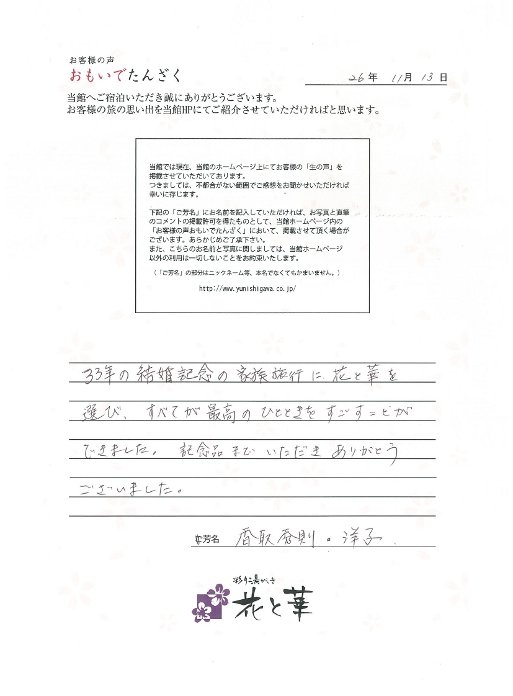 お客様の声
おもいでたんざく
26年 11月 13日
当館へご宿泊いただき誠にありがとうございます。
お客様の旅の思い出を当館HPにてご紹介させていただければと思います。
当館では現在、当館のホームページ上にてお客様の「生の声」を
掲載させていただいております。
つきましては、不都合がない範囲でご感想をお聞かせいただければ
幸いに存じます。
下記の「ご芳名」にお名前を記入していただければ、お写真と直筆
のコメントの掲載許可を得たものとして、当館ホームページ内の
「お客様の声おもいでたんざく」において、掲載させて頂く場合が
ございます。あらかじめご了承下さい。
また、こちらのお名前と写真に関しましては、当館ホームページ
以外の利用は一切しないことをお約束いたします。
(「ご芳名」の部分はニックネーム等、本名でなくてもかまいません。)
http://www.yunishigawa.co.jp/
33年の結婚記念の家族旅行に、花と華を
選び、すべてが最高のひとときをすごすことが
できました。記念品までいただきありがとう
ございました。
ご芳名 香取 則・洋子
花と華